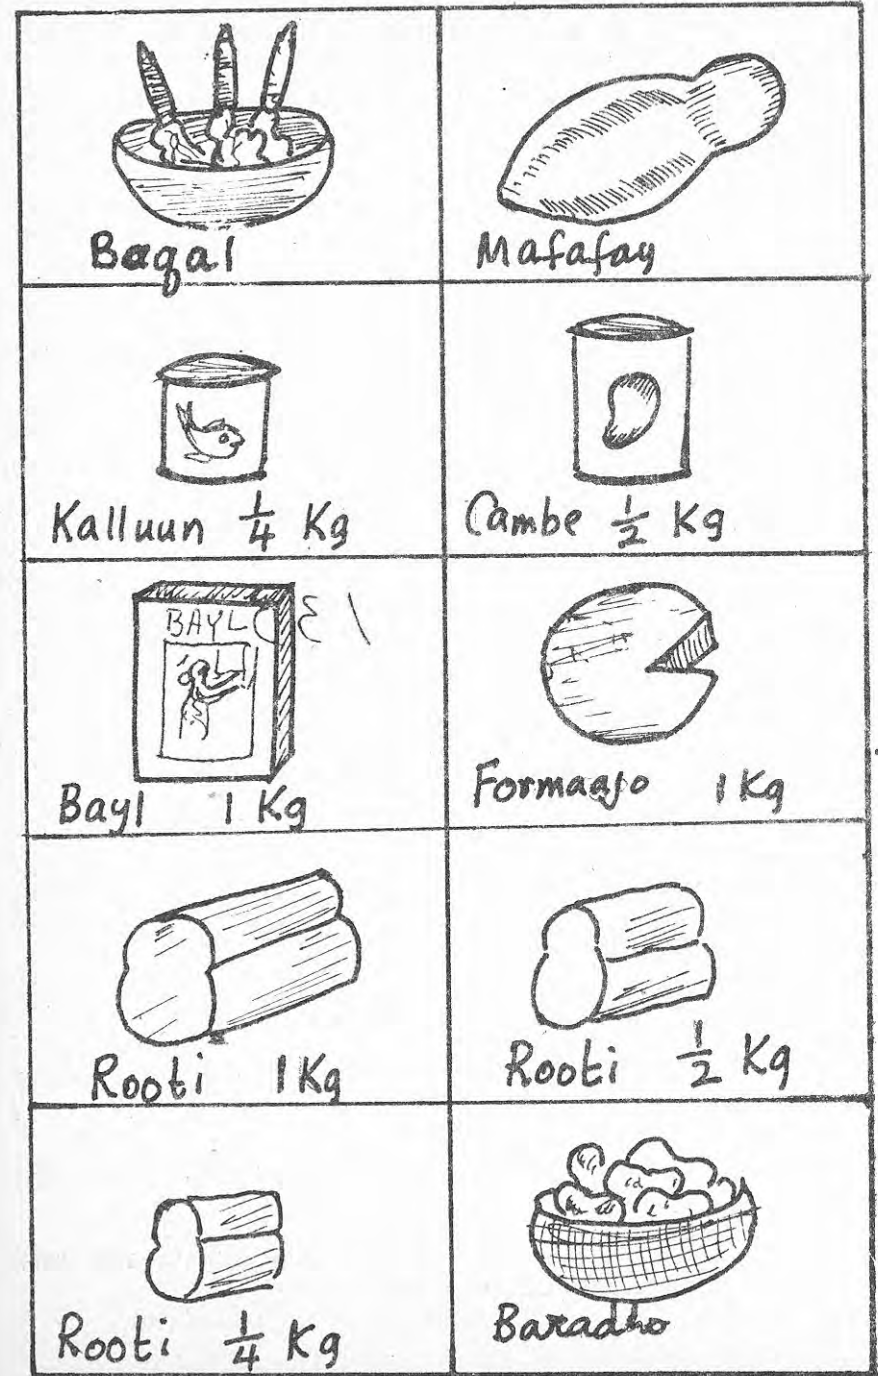 Baqal
Mafafay
Kalluun 1/4 Kg
Cambe 1/2 Kg
BAYL
Bayl 1 Kg
Formaajo 1 Kg
Rooti 1 Kg
Rooti 1/2 Kg
Rooti 1/4 Kg
Baradho